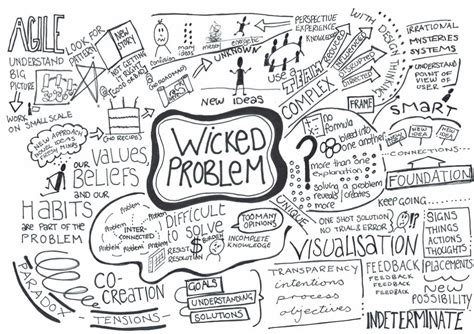 AGILE
UNDERSTAND
BIG
PICTURE
WORK
ON SMALL SCALE
LOOK FOR
PATTERN
NEW
STORY
NOT GETTING
confusion
many
ideas
complete
UNKNOWN
NEW IDEAS
PERSPECTIVE
EXPERIENCE
KNOWLEDGE
USE
THEM
COMPLEX
WITH DESIGN THINKING
FRAME
IRRATIONAL
MYSTERIES
SYSTEMS
UNDERSTAND
POINT OF
VIEW OF
USER
SMART
NEW
IDEA
NEW IDEA
CONNECTIONS
FOUNDATION
WICKED
PROBLEM
?
no
formula
bleed into
one another
more than one
explanation
solving a problem
reveals/creates
more
UNIQUE
NEW APPROACH
NO RECIPES
OUR
VALUES
BELIEFS
and our
HABITS
ARE PART OF THE
PROBLEM
Problem
Problem
Problem
Problem
INTER-
CONNECTED
DIFFICULT
TO
SOLVE
RESIST
RESOLUTION
BURDEN
TOO MANY
OPINIONS
INCOMPLETE
KNOWLEDGE
ONE SHOT SOLUTION
NO TRIAL & ERROR
KEEP GOING
VISUALISATION
SIGNS
THINGS
ACTIONS
THOUGHTS
FEEDBACK
FEEDBACK
FEEDBACK
PLACEMENTS
NEW
POSSIBILITY
INDETERMINATE
PARADOX
TENSIONS
CO
CREATION
GOALS
UNDERSTANDING
SOLUTIONS
TRANSPARENCY
intentions
process
objectives